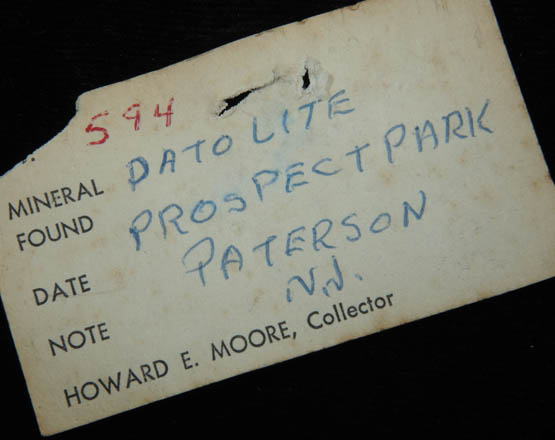 594
MINERAL DATOLITE
FOUND PROSPECT PARK
DATE PATERSON
NOTE N.J.
HOWARD E. MOORE, Collector